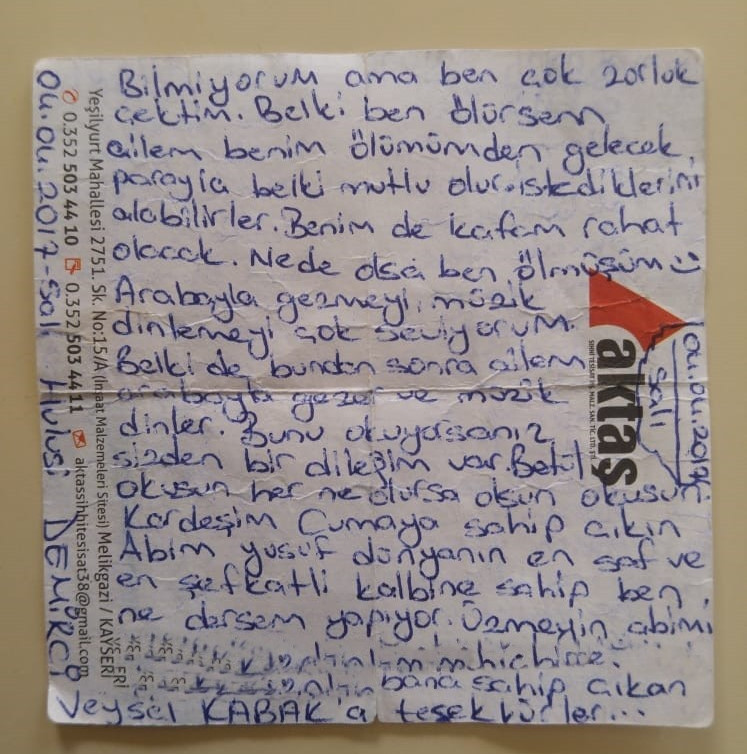 Bilmiyorum ama ben çok zorluk
çektim. Belki ben ölürsem
ailem benim ölümümden gelecek
parayla belki mutlu olur. istediklerini
alabilirler. Benim de kafam rahat
olacak. Nede olsa ben ölmüşüm :)
Arabayla gezmeyi, müzik
dinlemeyi çok seviyorum.
Belki de bundan sonra ailem
arabayla gezer ve müzik
dinler. Bunu okuyorsanız
sizden bir dileğim var. Betül
okusun her ne olursa olsun okusun
Kardeşim Cumaya sahip çıkın
Abim yusuf dünyanın en saf ve
en şefkatli kalbine sahip ben
ne dersem yapıyor. Üzmeyin abimi
bana sahip çıkan
Veysel KABAK'a teşekkürler...
04.04.2017
Salı
aktaş
Yeşilyurt Mahallesi 2751. Sk. No:15/A (İnşaat Malzemeleri Sitesi) Melikgazi / KAYSERİ
0.352 503 44 10 0.352 503 44 11 aktassihhitesisat38@gmail.com
04.04.2017-Salı Hulusi DEMİRCİ